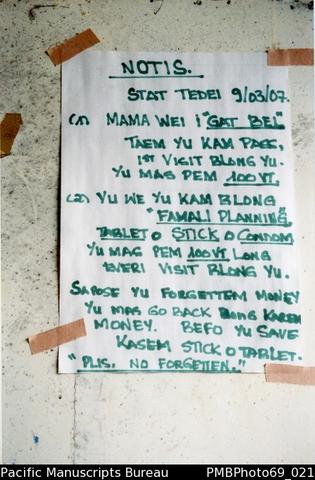 NOTIS.
STAT TEDEI 9/03/07.
(1) MAMA WEI I "GAT BEL"
TAEM YU KAM PAES,
1ST VISIT BLONG YU.
YU MAS PEM 100VT.
(2) YU WE YU KAM BLONG
"FAMALI PLANNING,
TABLET O STICK O CONDOM
YU MAS PEM 100VT LONG
EVERI VISIT BLONG YU.
SAPOSE YU FORGETTEM MONEY
YU MAS GO BACK BLONG KAREM
MONEY. BEFO YU SAVE
KASEM STICK O TABLET.
"PLIS, NO FORGETEN."
Pacific Manuscripts Bureau PMBPhoto69_021